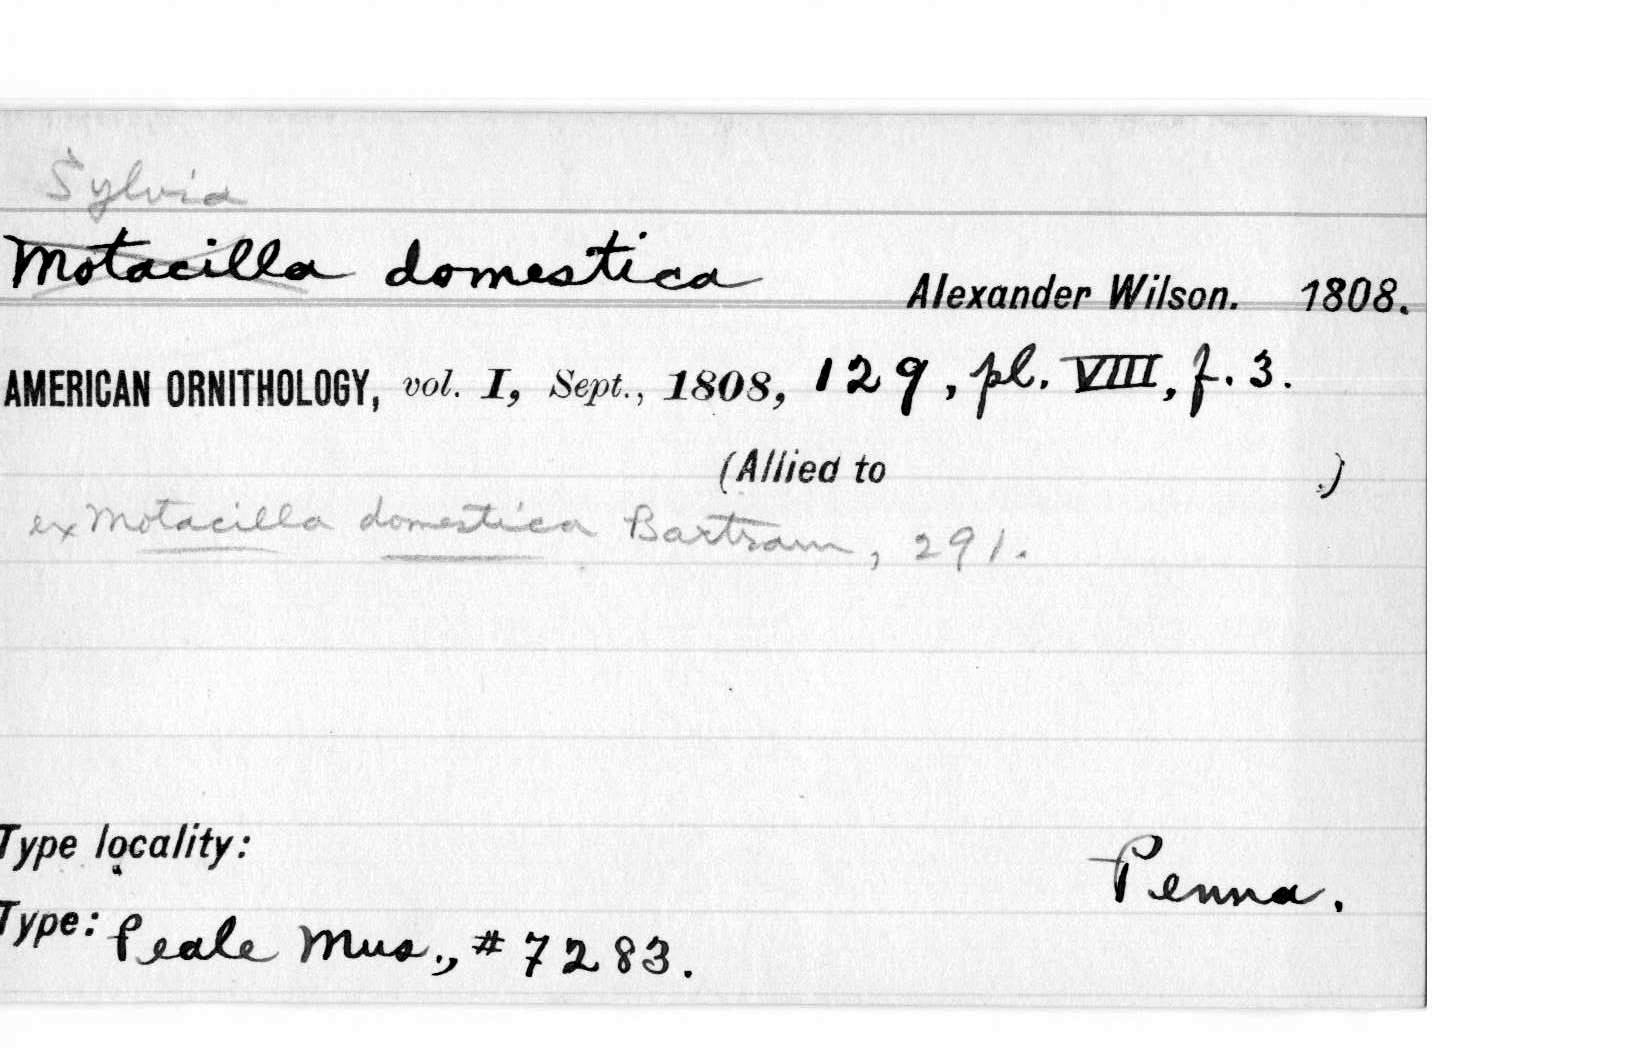 Sylvia
Motacilla domestica Alexander Wilson. 1808.
AMERICAN ORNITHOLOGY, vol. I, Sept., 1808, 129, pl. VIII, f. 3.
(Allied to .)
ex Motacilla domestica Bartram, 291.
Type locality: Penna.
Type: Peale Mus., # 7283.